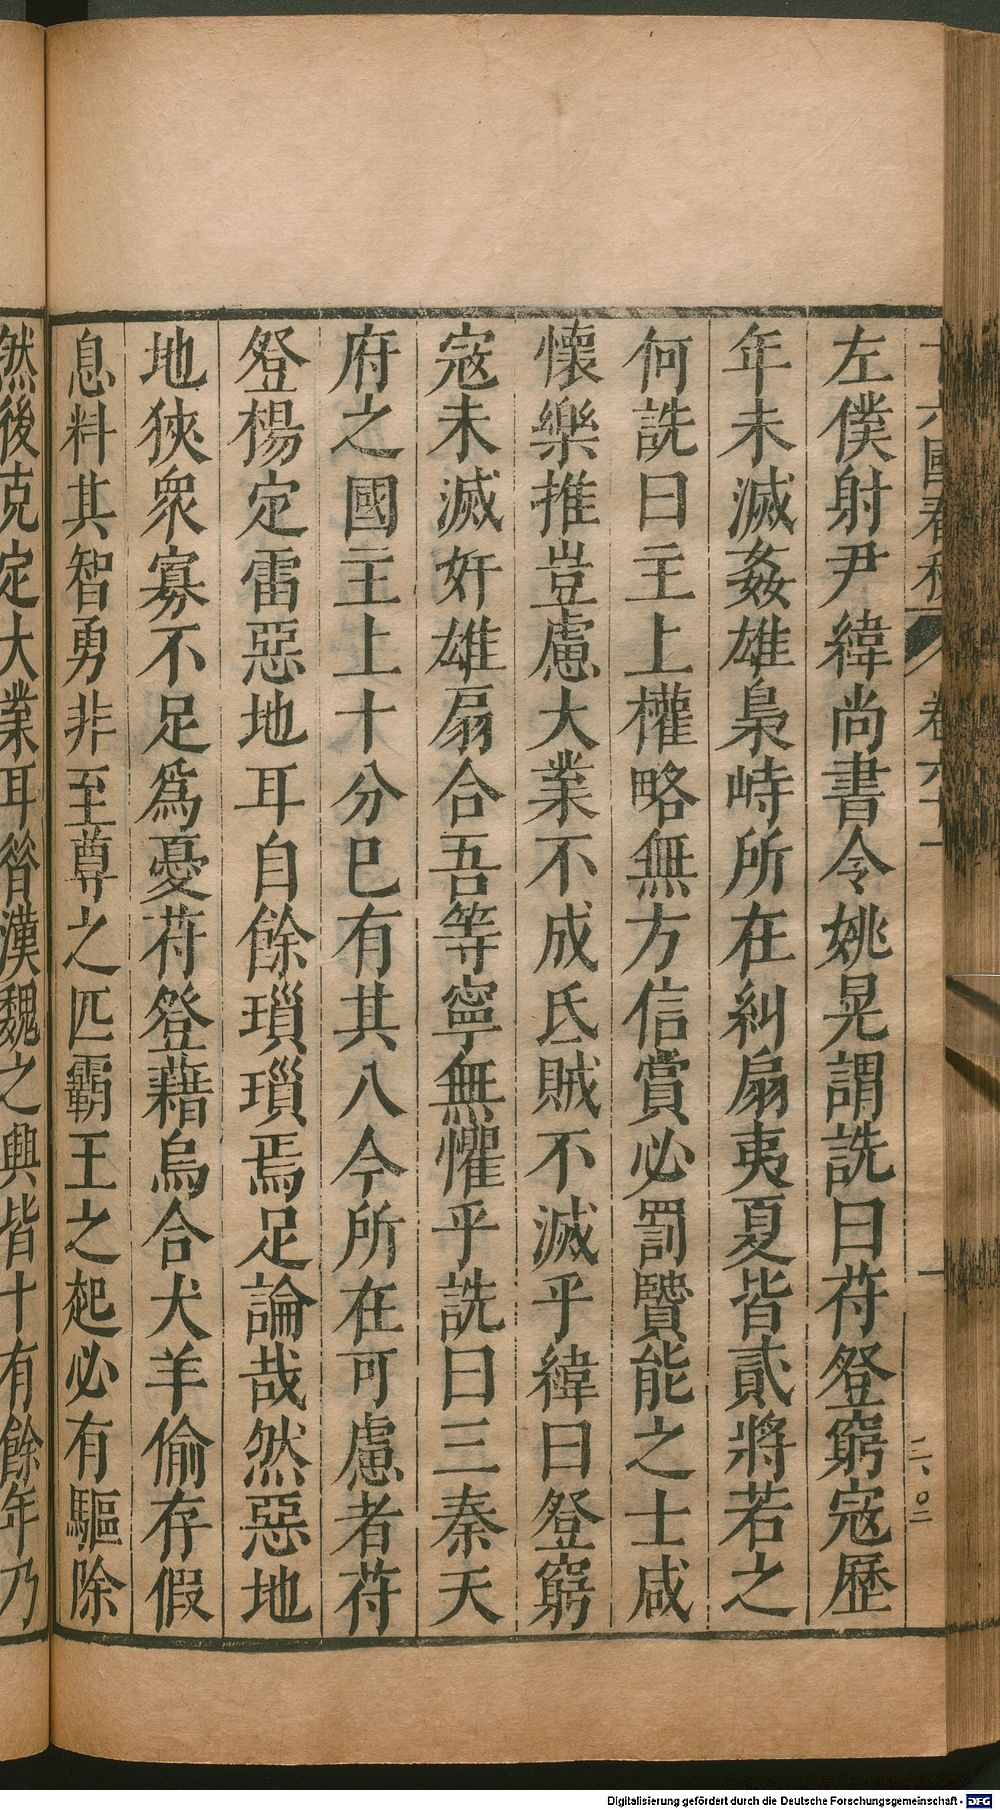 左僕射尹緯尚書令姚晃謂詵曰苻登窮寇歷
年未滅姦雄梟峙所在糾扇夷夏皆貳將若之
何詵曰主上權略無方信賞必罰賢能之士咸
懷樂推豈慮大業不成氐賊不滅乎緯曰登窮
寇未滅奸雄扇合吾等寧無懼乎詵曰三秦天
府之國主上十分已有其八今所在可慮者苻
登楊定雷惡地耳自餘瑣瑣焉足論哉然惡地
地狹衆寡不足爲憂苻登藉烏合犬羊偷存假
息料其智勇非至尊之匹霸王之起必有驅除
然後克定大業耳昝漢魏之興皆十有餘年乃
Digitalisierung gefördert durch die Deutsche Forschungsgemeinschaft - DFG